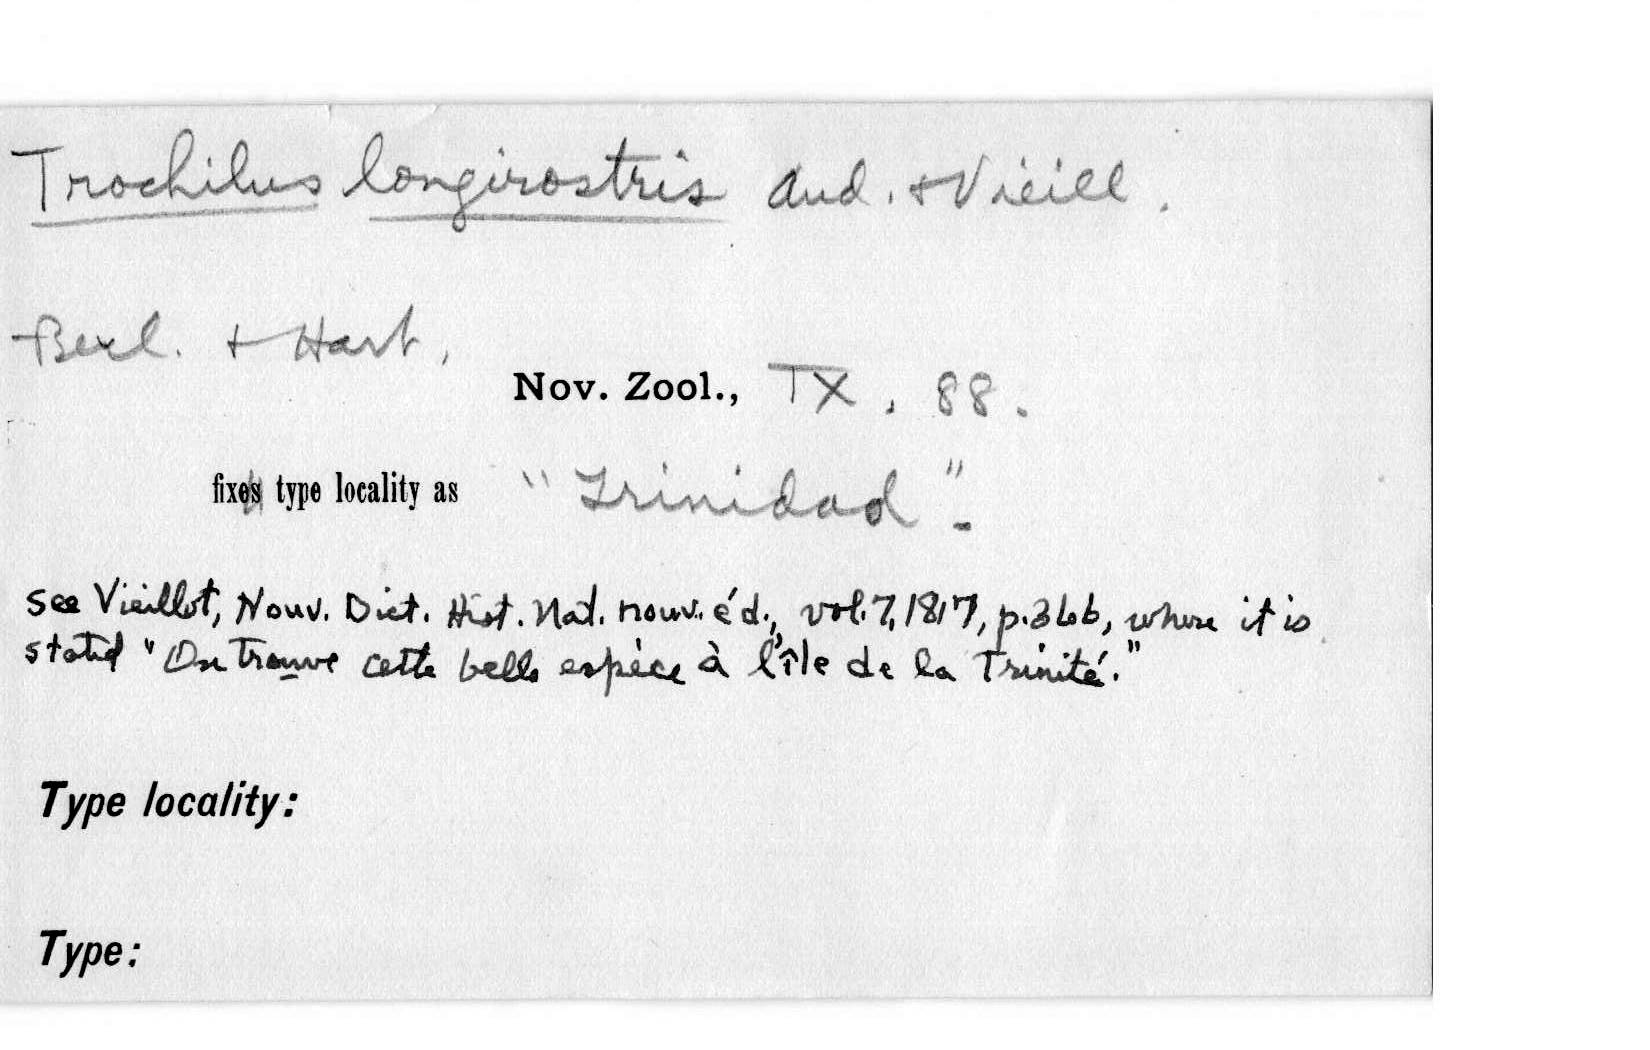 Trochilus longirostris Aud. + Vieill.
Berl. + Hart,
Nov. Zool., IX, 88.
fixes type locality as "Trinidad".
See Vieillot, Nouv. Dict. Hist. Nat. nouv. éd., vol. 7, 1817, p. 366, where it is
stated "On trouve cette belle espèce à l'île de la Trinité."
Type locality:
Type: